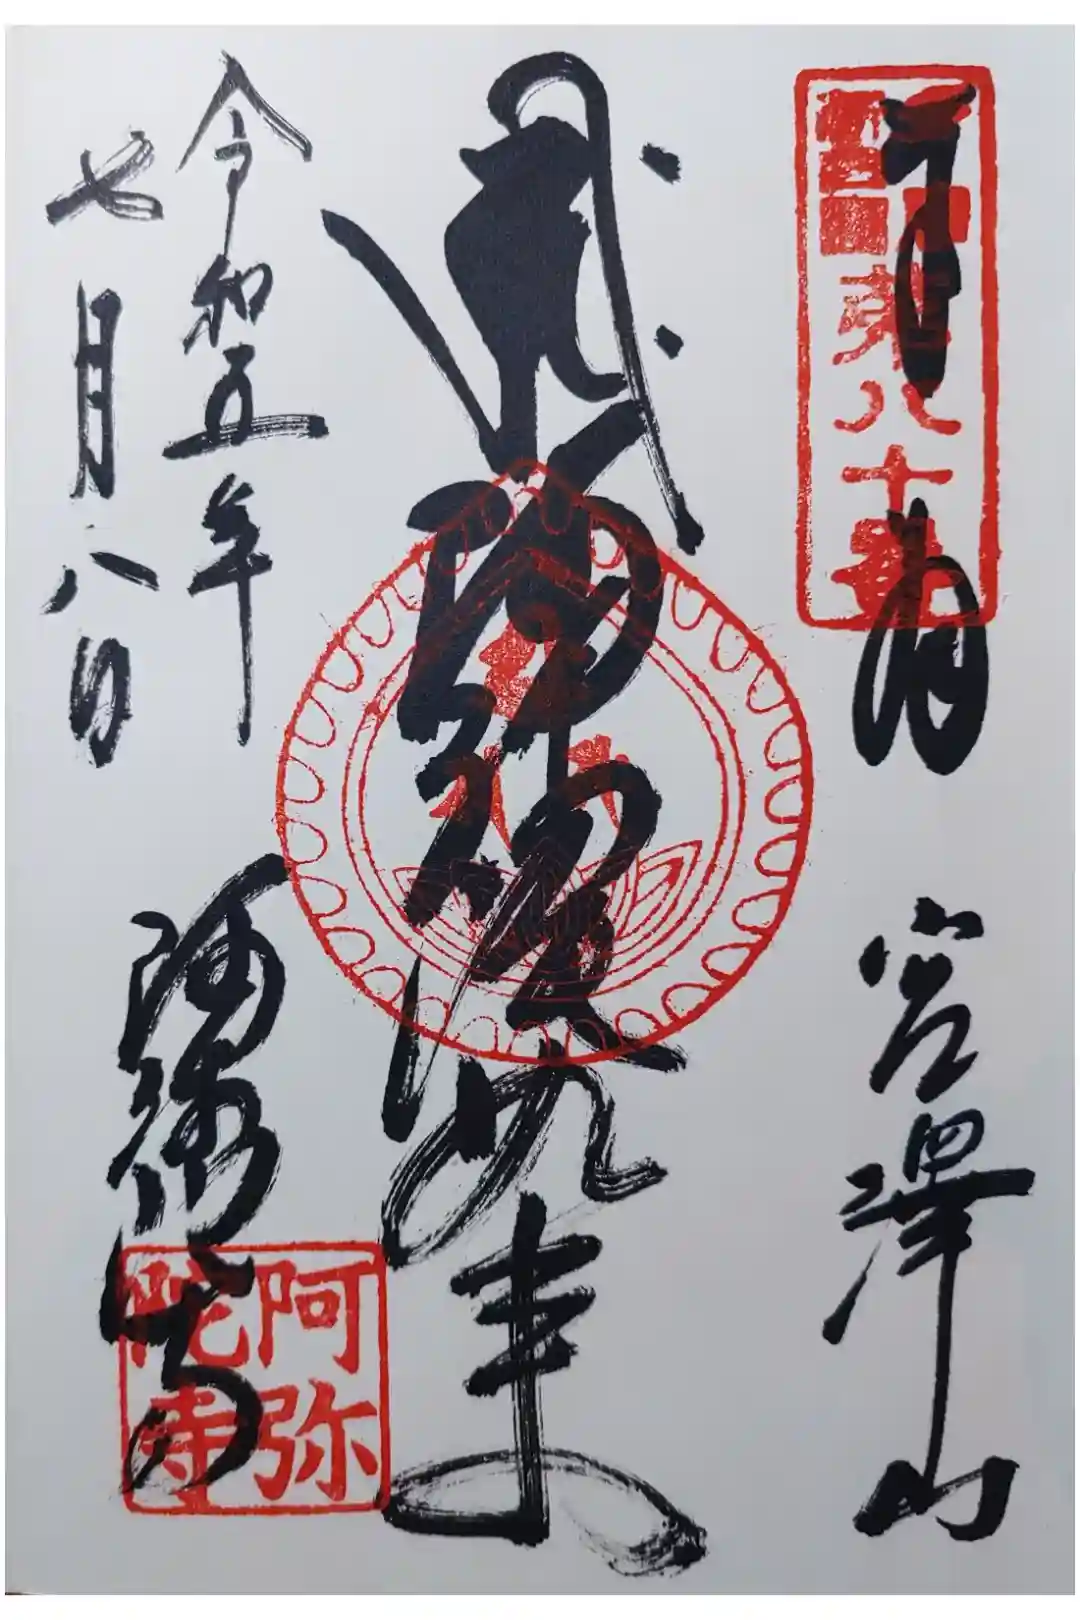 奉拝
宮澤山
阿弥陀如来
令和五年
七月八日
阿弥陀寺
第八十番
阿弥
陀寺